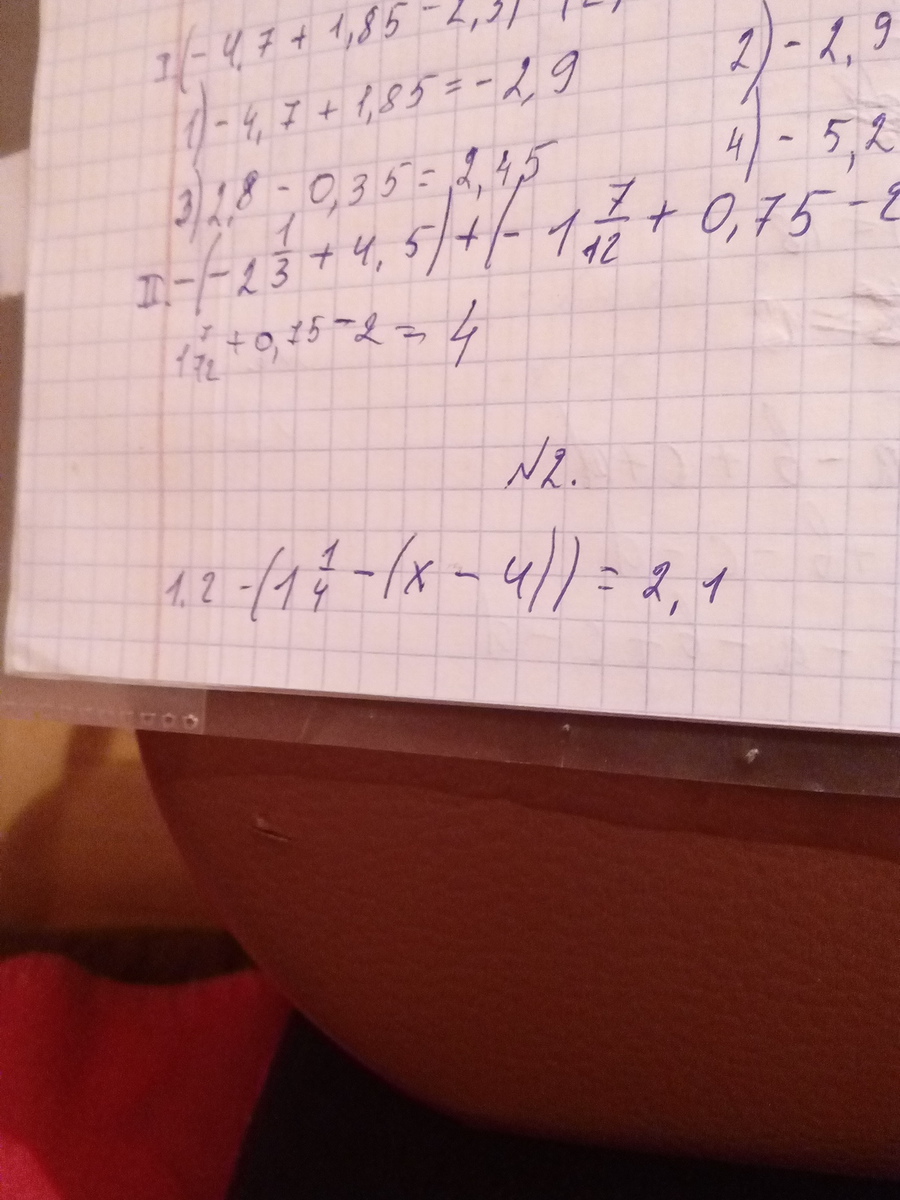 I (- 4,7 + 1,85 - 2,3)
1) - 4,7 + 1,85 = - 2,9
2) - 2,9
3) 2,8 - 0,35 = 2,45
4) - 5,2
II. - (- 2 1/3 + 4,5) + (- 1 7/12 + 0,75 - 2
1 7/12 + 0,75 - 2 = 4
N2.
1.2 - (1 1/4 - (x - 4)) = 2,1